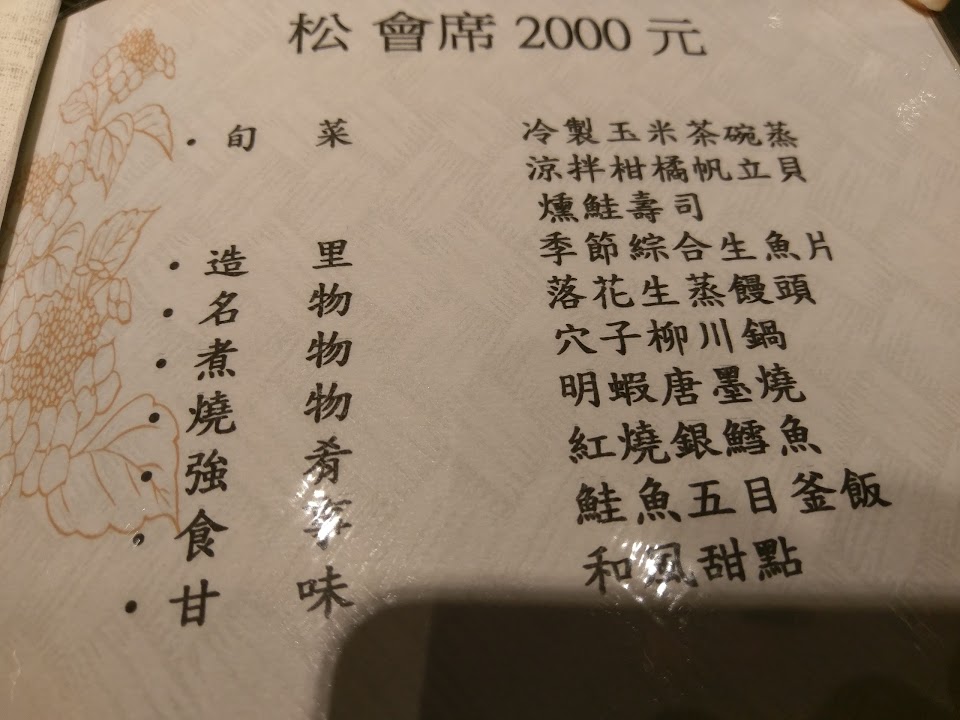 松 會席 2000 元
・旬 菜 冷製玉米茶碗蒸
涼拌柑橘帆立貝
燻鮭壽司
・造 里 季節綜合生魚片
・名 物 落花生蒸饅頭
・煮 物 穴子柳川鍋
・燒 物 明蝦唐墨燒
・強 肴 紅燒銀鱈魚
・食 事 鮭魚五目釜飯
・甘 味 和風甜點